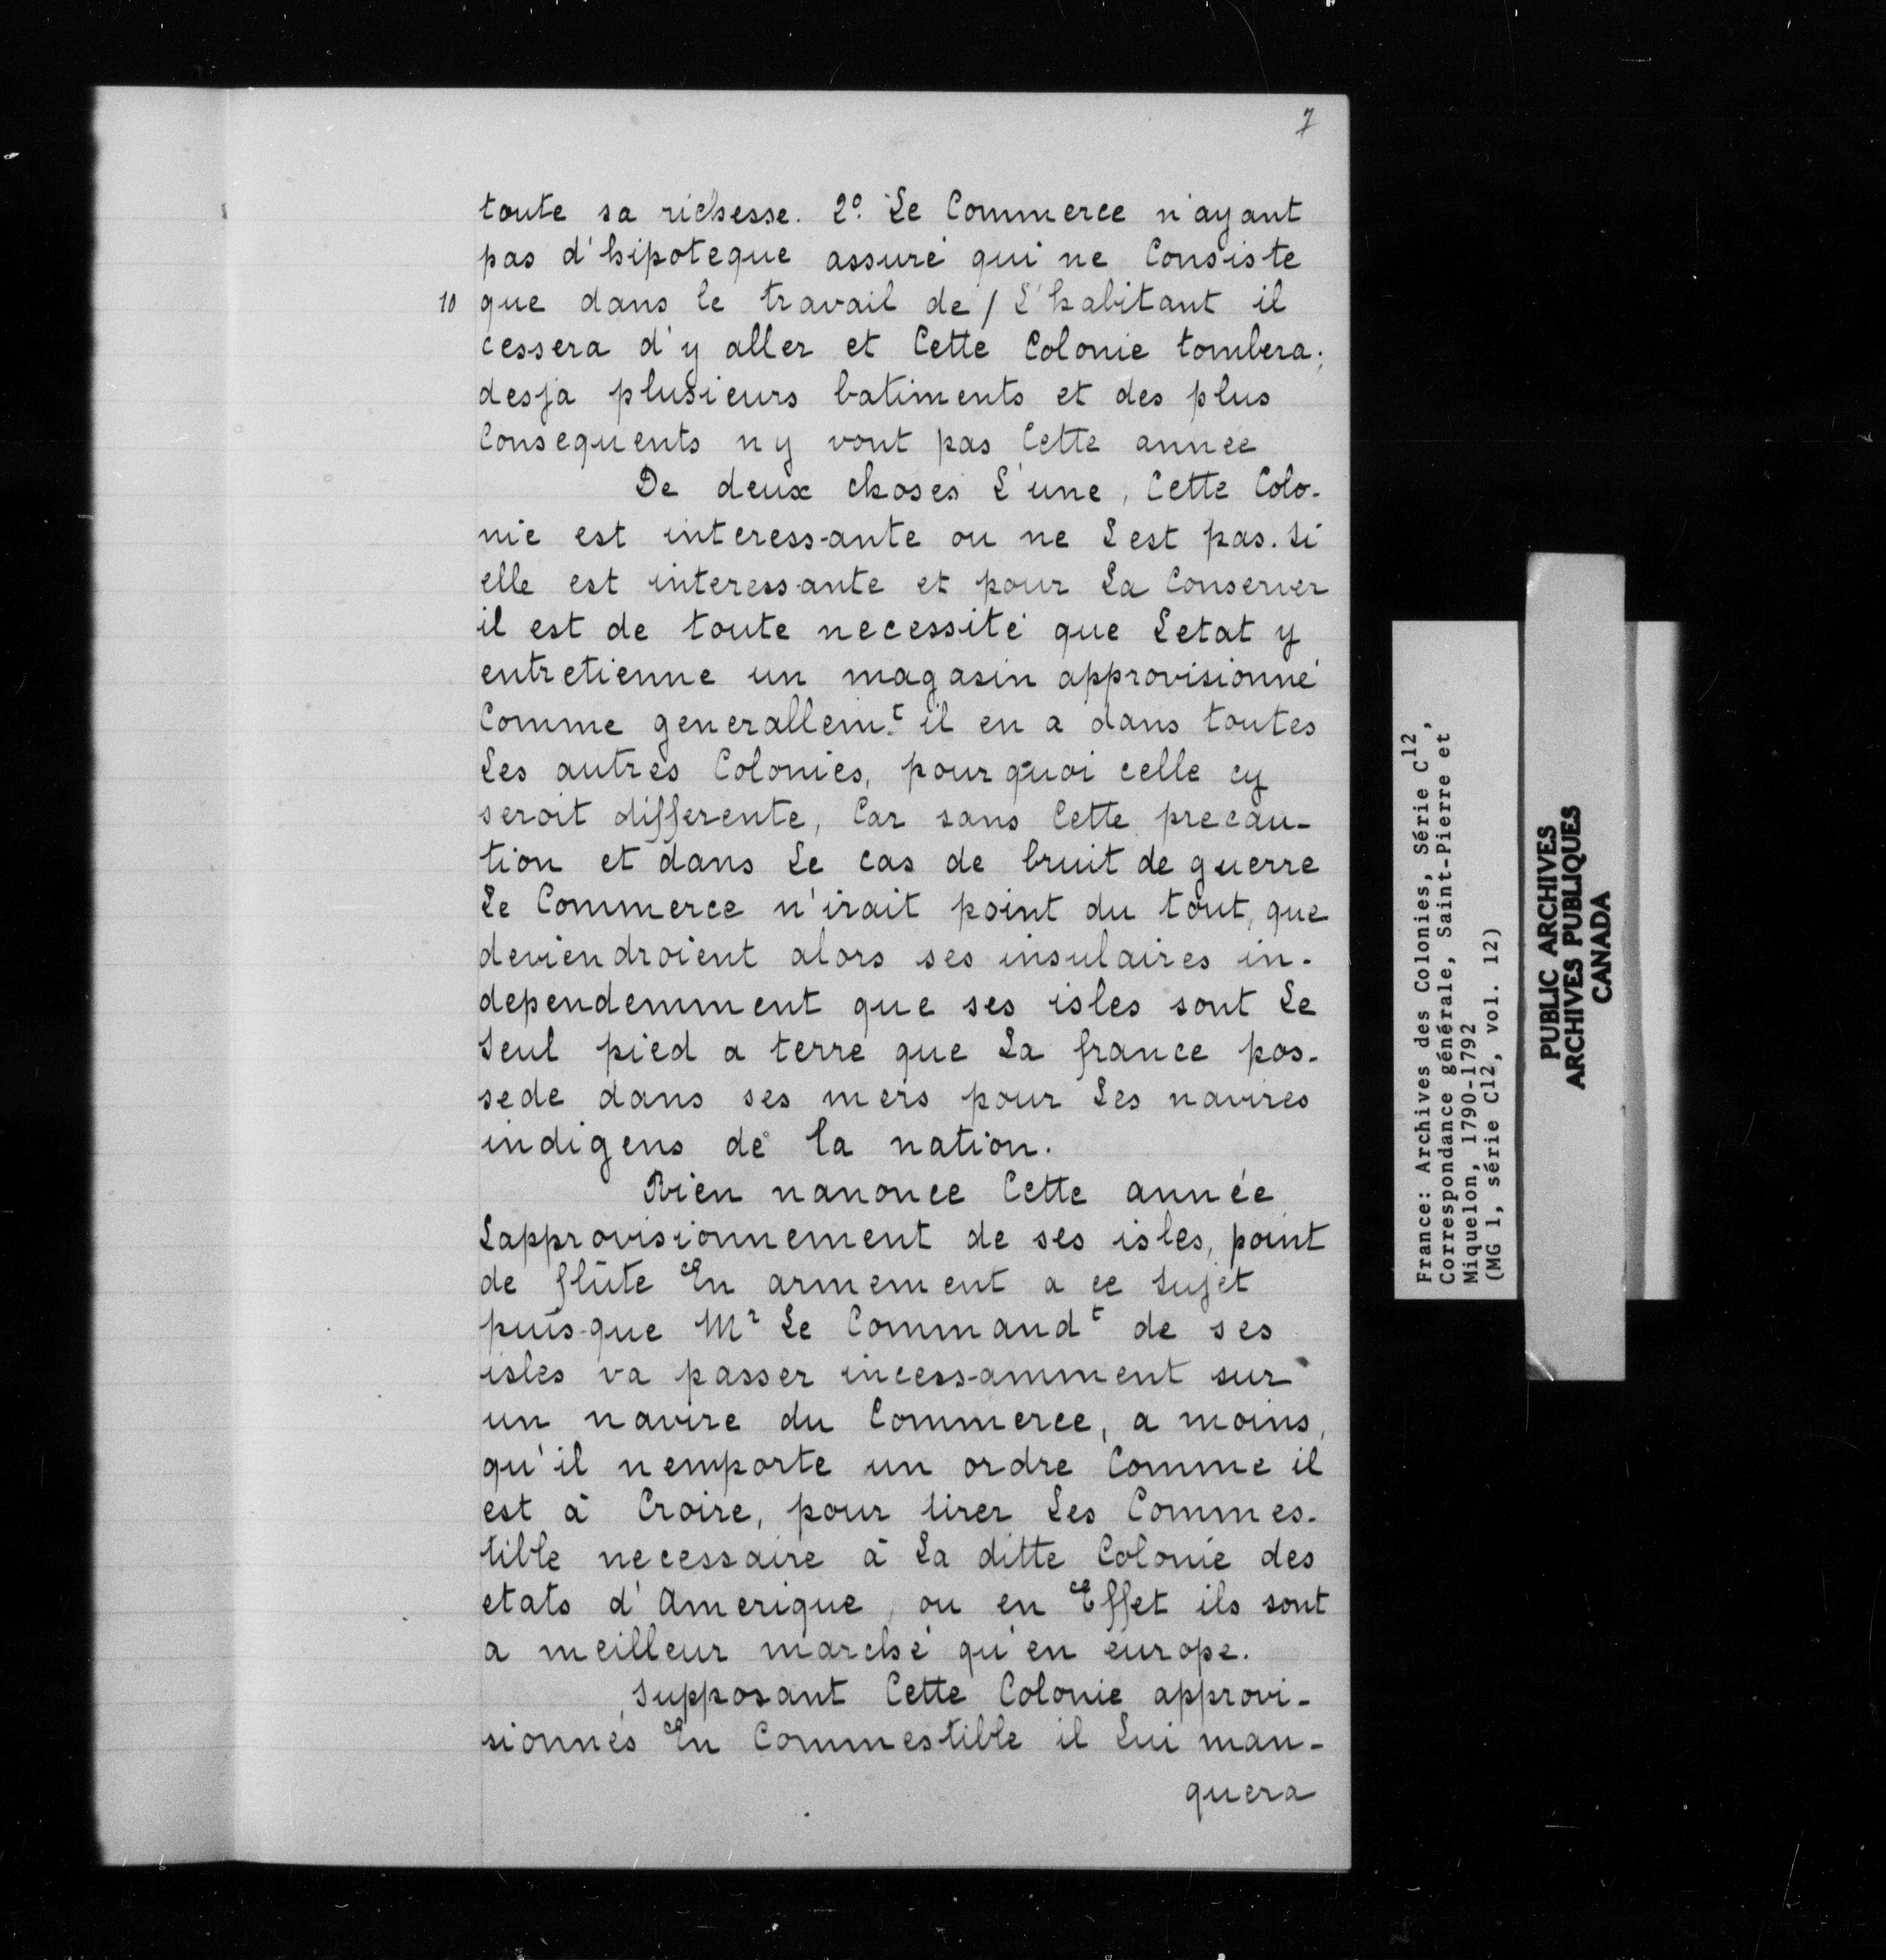 7
toute sa richesse. 2º. Le Commerce n'ayant
pas d'hipoteque assuré qui ne Consiste
10 que dans le travail de / L'habitant il
cessera d'y aller et Cette Colonie tombera;
desja plusieurs batiments et des plus
Consequents n y vont pas Cette année
De deux choses L'une, Cette Colo-
nie est interessante ou ne Lest pas. Si
elle est interessante et pour La Conserver
il est de toute necessité que Letat y
entretienne un magasin approvisionné
Comme generallem.t il en a dans toutes
Les autres Colonies, pourquoi celle cy
seroit differente, Car sans Cette precau-
tion et dans Le cas de bruit de guerre
Le Commerce n'irait point du tout, que
deviendroient alors ses insulaires in-
dependemment que ses isles sont Le
Seul pied a terre que La france pos-
sede dans ses mers pour Les navires
indigens de la nation.
Rien nanonce Cette année
Lapprovisionnement de ses isles, point
de flûte En armement a ce Sujet
puis-que Mr Le Commandt de ses
isles va passer incessamment sur
un navire du Commerce, a moins,
qu'il nemporte un ordre Comme il
est à Croire, pour tirer Les Commes-
tible necessaire à La ditte Colonie des
etats d'Amerique, ou en Effet ils sont
a meilleur marché qu'en europe.
Supposant Cette Colonie approvi-
sionnés En Commestible il Lui man-
quera
France: Archives des Colonies, Série C12,
Correspondance générale, Saint-Pierre et
Miquelon, 1790-1792
(MG 1, série C12, vol. 12)
PUBLIC ARCHIVES
ARCHIVES PUBLIQUES
CANADA